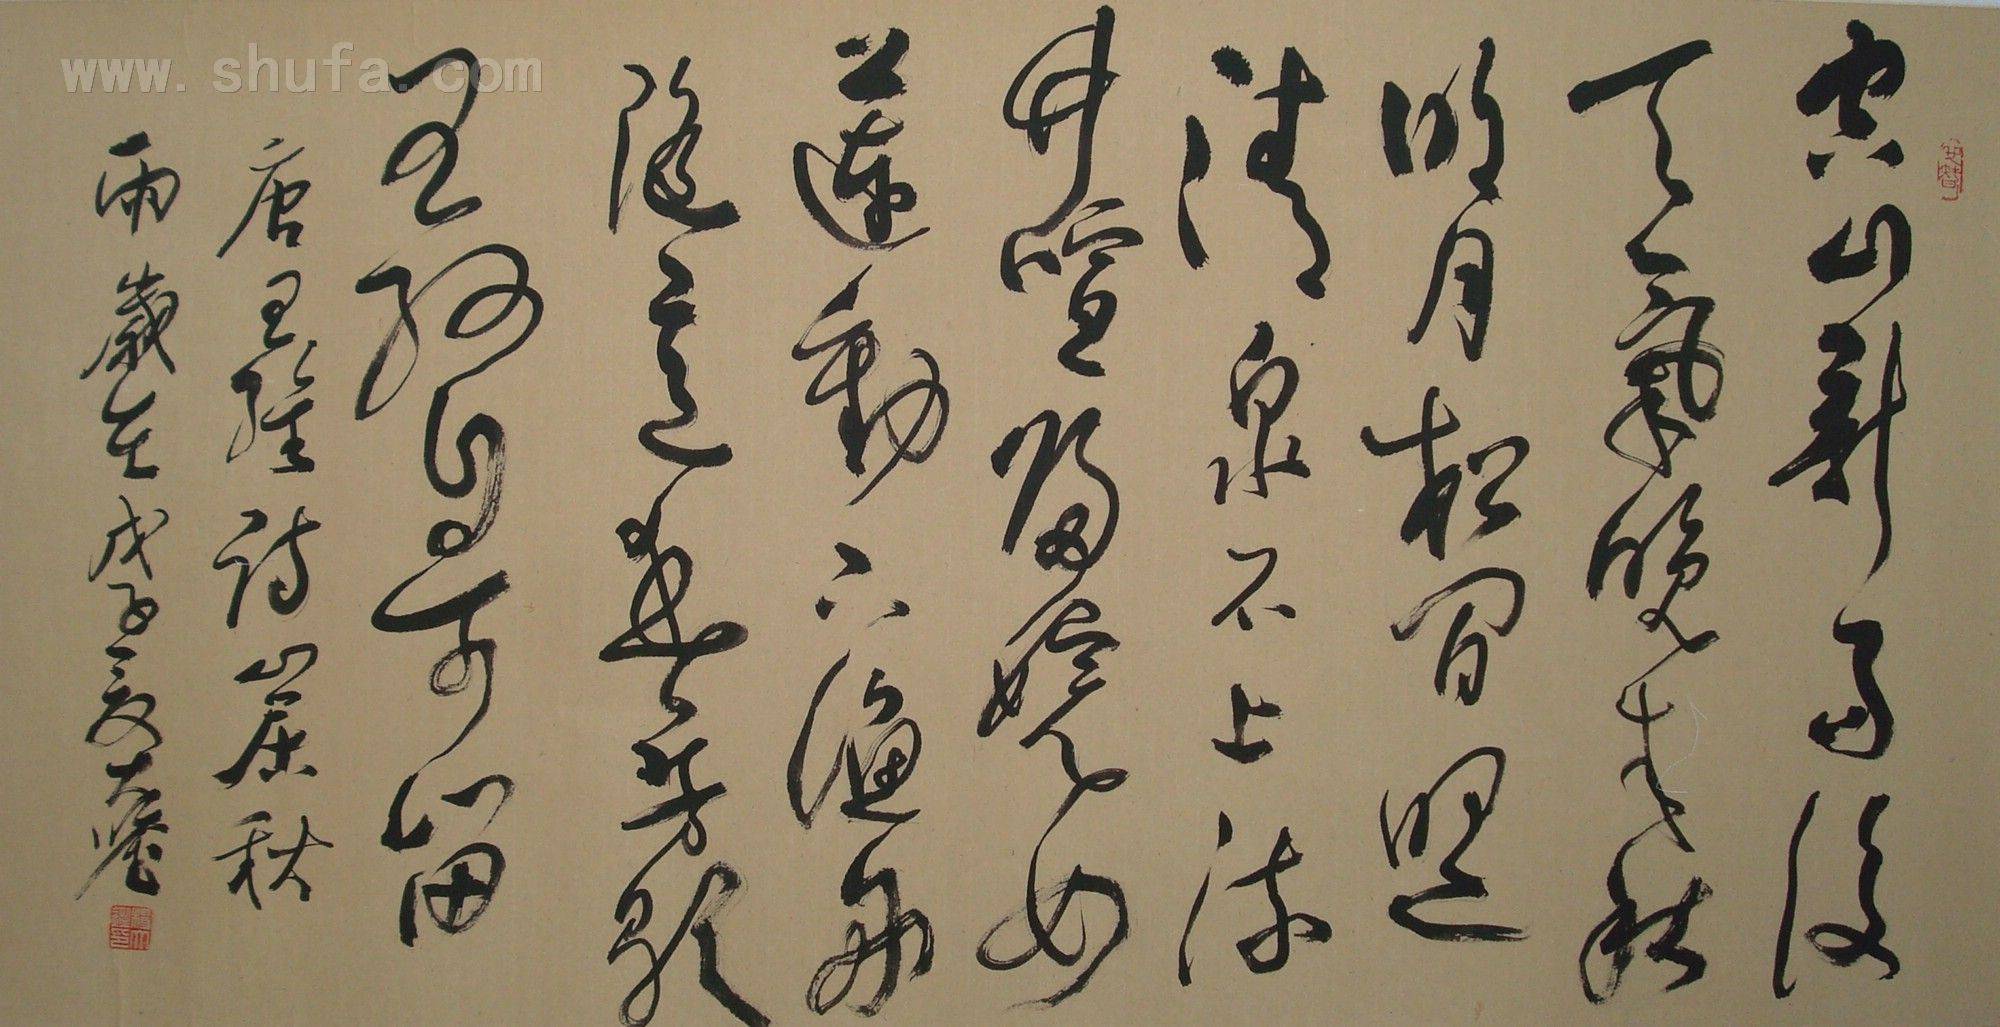 www.shufa.com
空山新雨後
天氣晚來秋
明月松間照
清泉石上流
竹喧歸浣女
蓮動下漁舟
隨意春芳歇
王孫自可留
唐王維詩山居秋
雨歲在戊子夏大